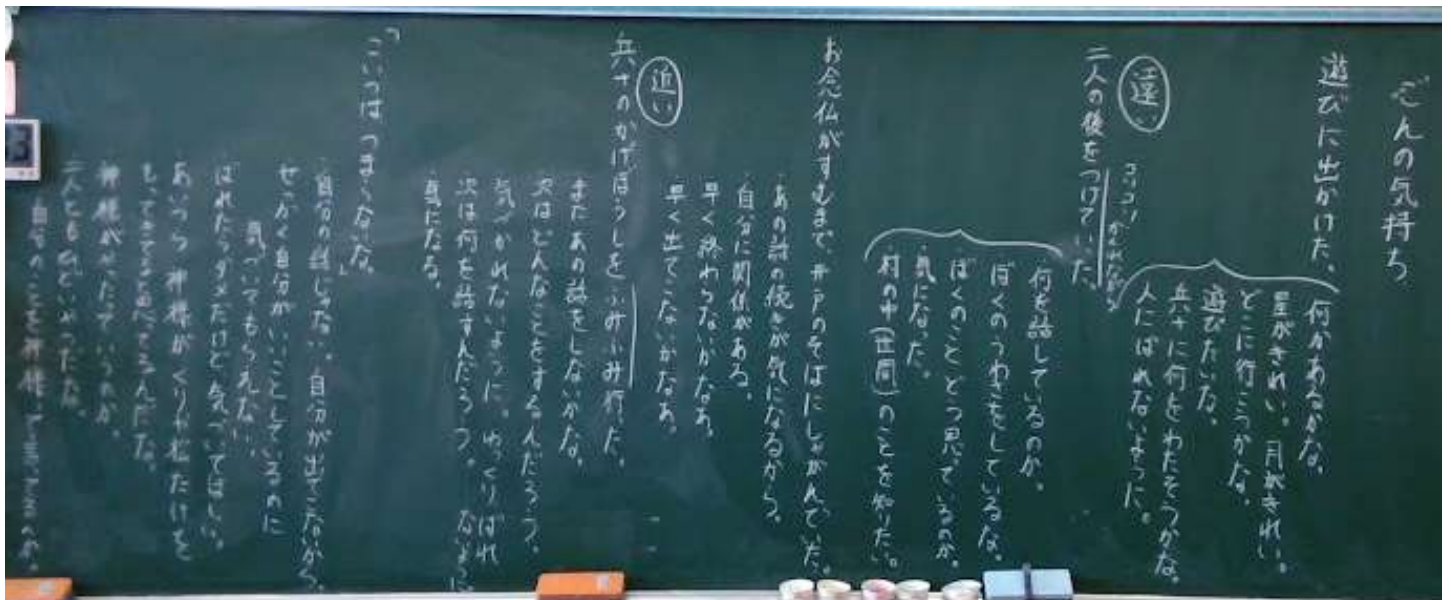 ごんの気持ち
遊びに出かけた。
何かあるかな。
星がきれい。月がきれい。
どこに行こうかな。
遊びたいな。
兵十に何をわたそうかな。
人にばれないように。
遠い
二人の後をつけていった。
コソコソ かくれながら
何を話しているのか。
ぼくのうわさをしているな。
ぼくのことどう思っているのか。
気になった。
村の中(世間)のことを知りたい。
お念仏がすむまで、井戸のそばにしゃがんでいた。
・あの話の続きが気になるから。
・自分に関係がある。
早く終わらないかなあ。
早く出てこないかなあ。
近い
兵十のかげぼうしをふみふみ行った。
またあの話をしないかな。
次はどんなことをするんだろう。
気づかれないように。ゆっくりばれ
ないように
次は何を話すんだろう。
気になる。
「こいつはつまらないな。」
・自分の話じゃない。自分が出てこないから。
せっかく自分がいいことしているのに
気づいてもらえない。
ばれたらダメだけど気づいてほしい。
あいつら神様がくりや松たけを
もってきてると思ってるんだな。
神様がやったっていうのか。
二人ともひどいやつだな。
自分のことを神様